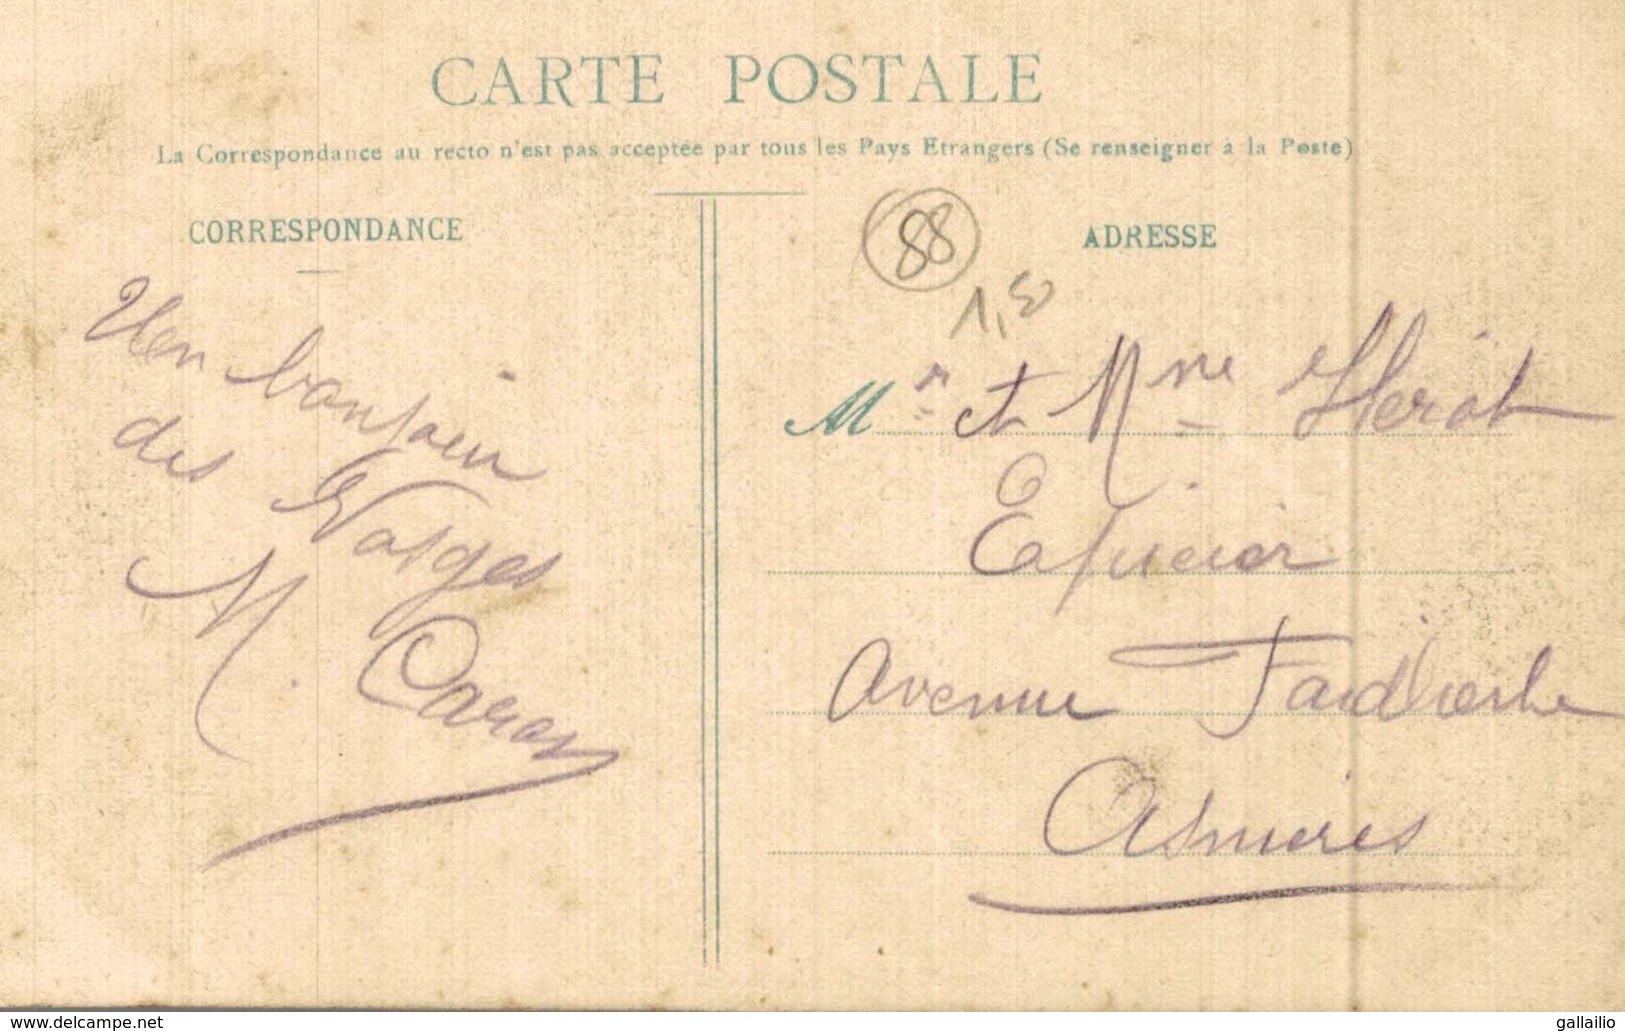 CARTE POSTALE
La Correspondance au recto n'est pas acceptée par tous les Pays Etrangers (Se renseigner à la Poste)
CORRESPONDANCE
Un bonjour
des Vosges
M. Caron
ADRESSE
88
1,50
Mr et Mme Hérot
Epicier
Avenue Faidherbe
Asnières
www.delcampe.net
gallailio